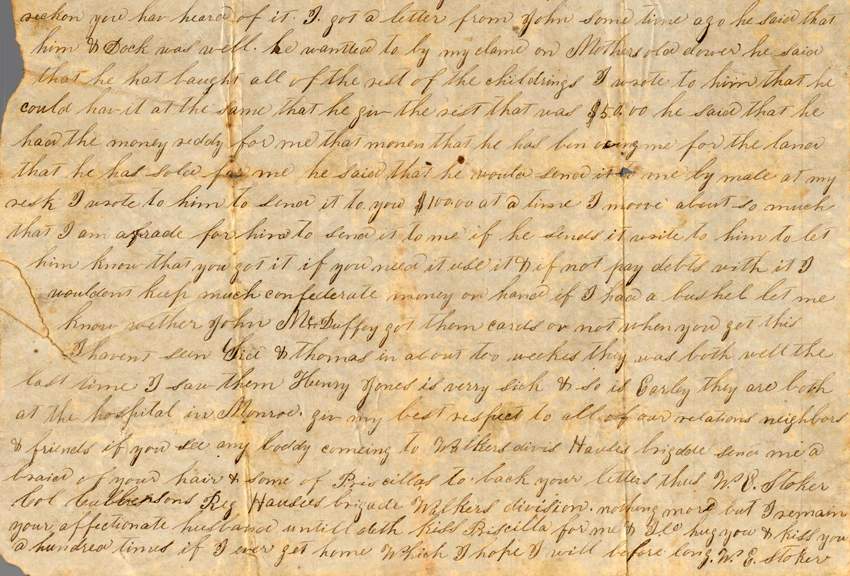 reckon you hav heard of it I. got a letter from John some time ago he said that
him & Dock was well. he wanted to by my clame on Mothers old dower he said
that he hat baught all of the rest of the childrings I wrote to him that he
could hav it at the same that he giv the rest that was $50.00 he said that he
had the money reddy for me that money that he has ben owing me for the land
that he has sold for me he said that he would send it to me by male at my
resk I wrote to him to send it to you $100.00 at a time I moove about so much
that I am afrade for him to send it to me if he sends it write to him to let
him know that you got it if you need it use it & if not pay debts with it I
wouldent keep much confederate money on hand if I had a bushel let me
know wether John McDuffey got them cards or not when you got this
I havent seen & thomas in about too weekes they was both well the
last time I saw them Henry Jones is verry sick & so is Earley they are both
at the hospital in Monroe. giv my best respect to all of our relations neighbors
& friends if you see any boddy comeing to Walkers divis Hauses brigade send me a
braid of your hair & some of Priscillas to. back your letters thus W. E. Stoker
Col Reg Hauses brigade Walkers division. nothing more but I remain
your affectionate husband untill deth kiss Priscilla for me & hug you & kiss you
a hundred times if I ever get home which I hope I will before long. W. E. Stoker